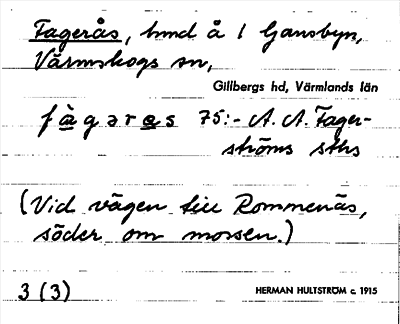 Fagerås, hmd å 1 Gansbyn,
Värmskogs sn,
Gillbergs hd, Värmlands län
fàgəras 75:- A. A. Fager-
ströms sths
(Vid vägen till Rommenäs,
söder om mossen.)
3 (3)
HERMAN HULTSTRÖM c. 1915